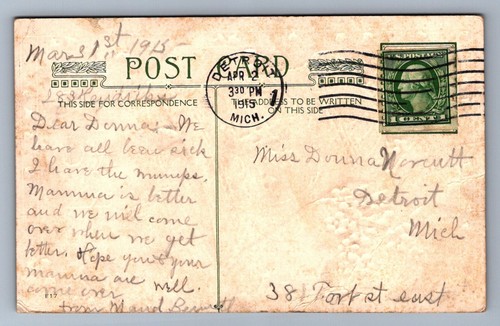 Mar 31st 1915
POST CARD
DETROIT
APR 2
330 PM
1915
MICH.
1
U.S. POSTAGE
1 CENT 1
THIS SIDE FOR CORRESPONDENCE
ADDRESS TO BE WRITTEN
ON THIS SIDE
Dear Donna:- We
have all been sick
I have the mumps.
Mamma is better
and we will come
over when we get
better. Hope you & your
mamma are well.
come over
from Maud Bennett
Miss Donna Norcutt
Detroit
Mich
38 Fort st east